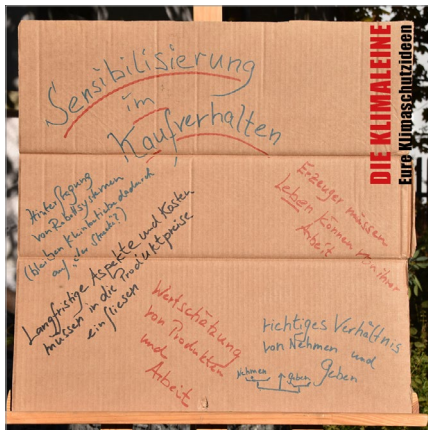 DIE KLIMALEINE
Eure Klimaschutzideen
Sensibilisierung
im
Kaufverhalten
Hinterfragung
von Rabattsystemen
(bleiben Kleinbetriebe dadurch
auf der Strecke?)
Langfristige Aspekte und Kosten
müssen in die Produktpreise
einfliesen
Erzeuger müssen
Leben können von ihrer
Arbeit
Wertschätzung
von Produkten
und
Arbeit
richtiges Verhältnis
von Nehmen und
Geben
Nehmen Geben